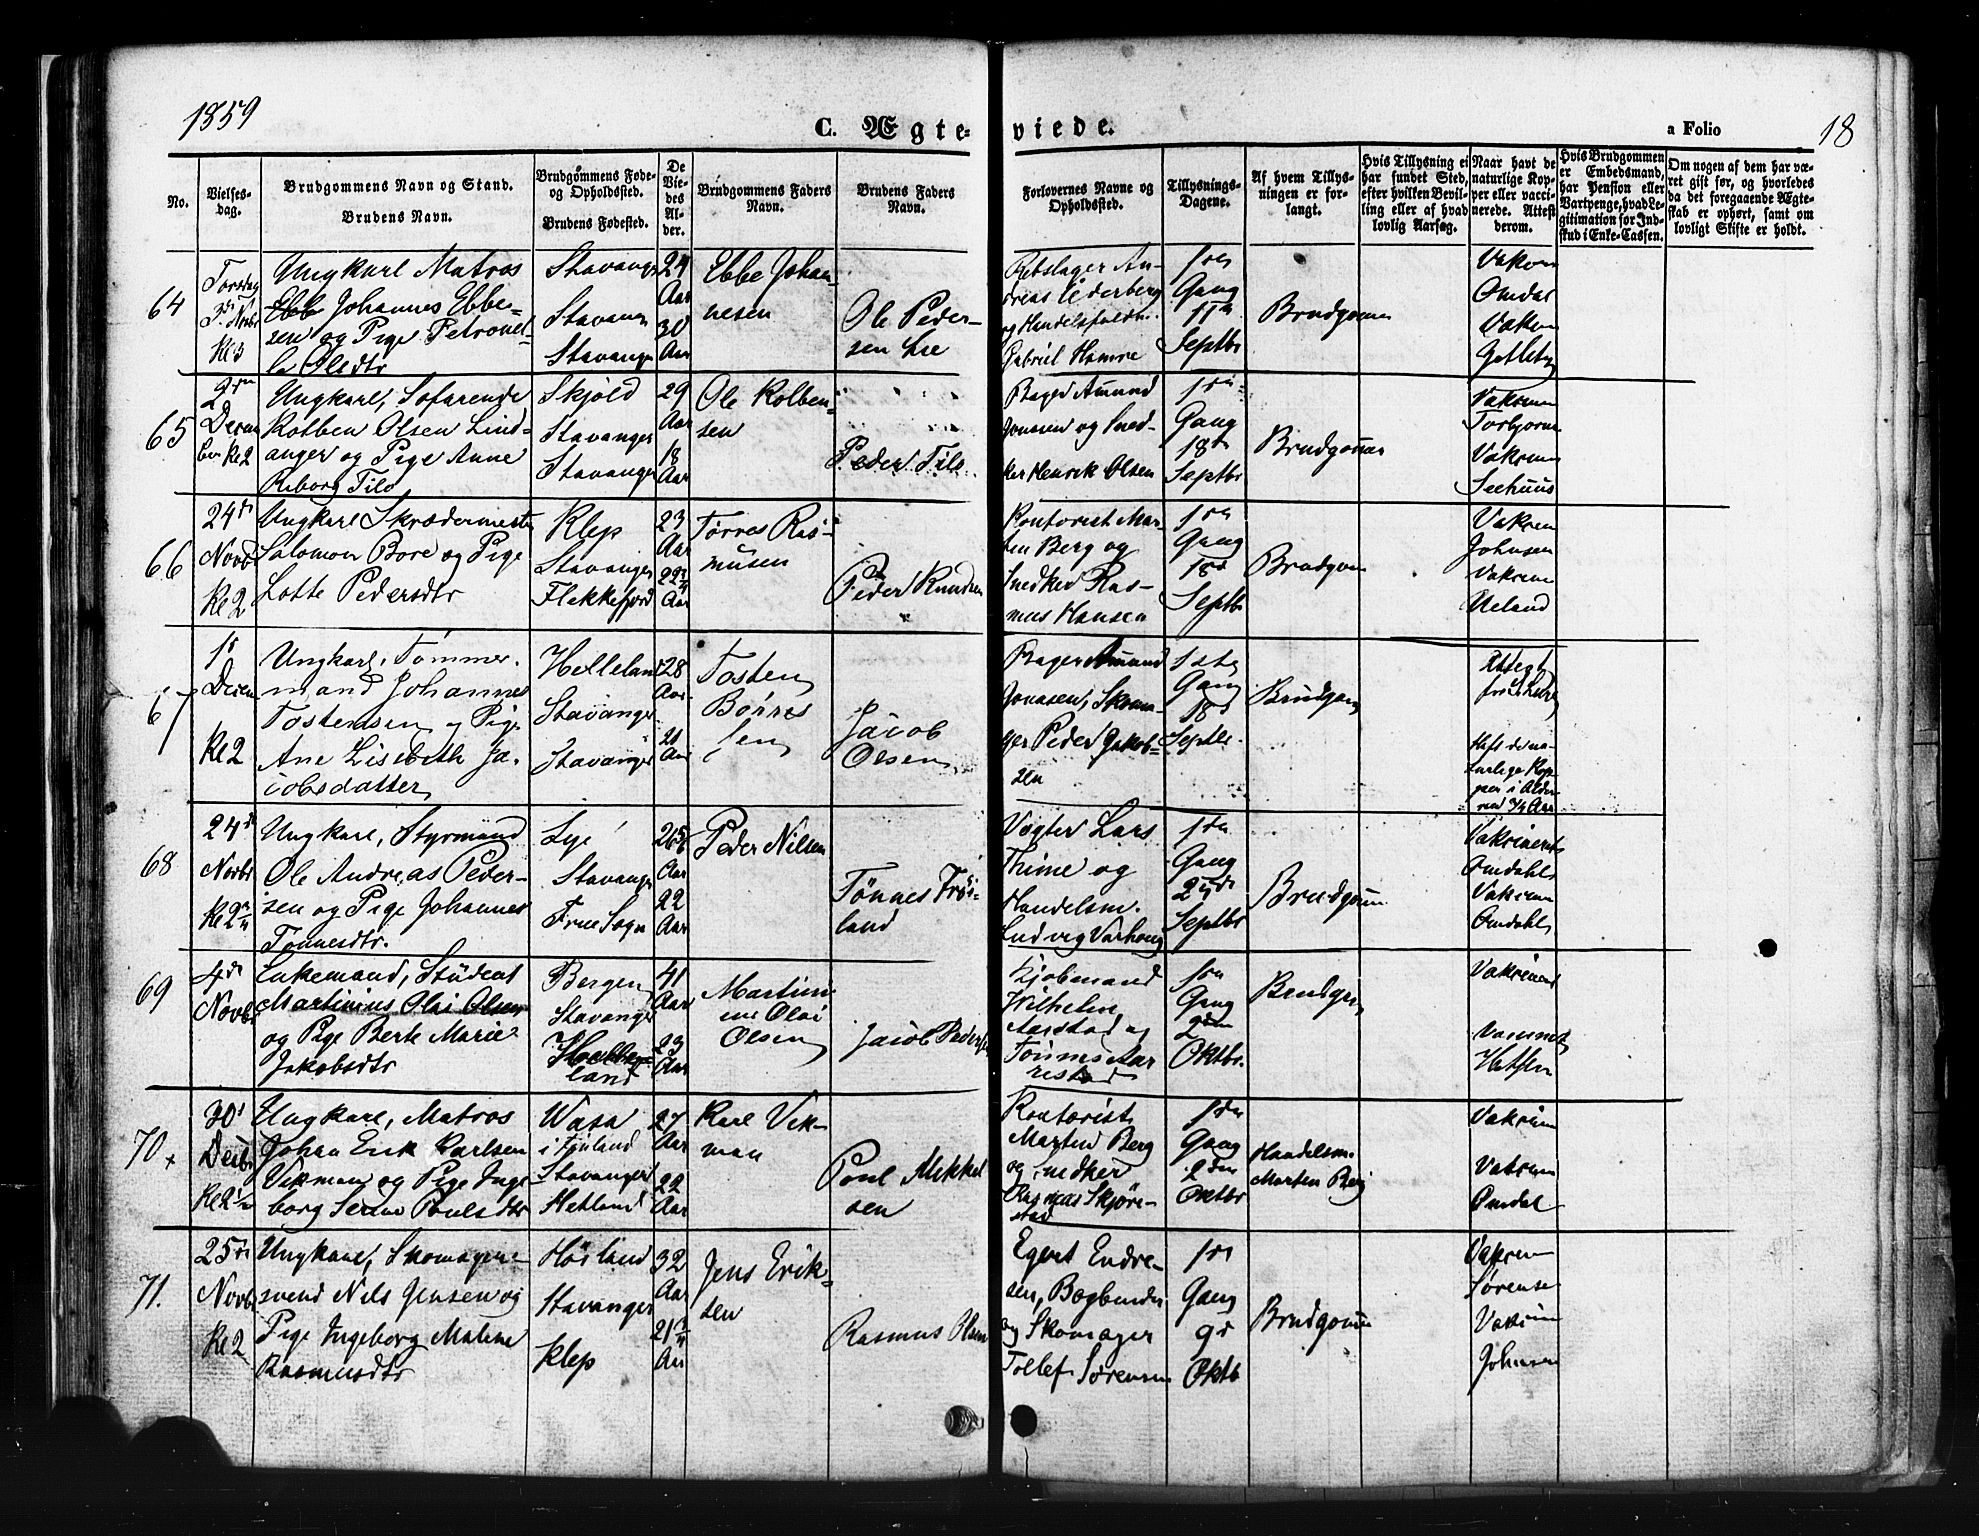 1859
C. Ægte-viede.
a Folio 18
No.
Vielses-dag.
Brudgommens Navn og Stand.
Brudens Navn.
Brudgommens Føde- og Opholdssted.
Brudens Fødested.
De Viedes Alder.
Brudgommens Faders Navn.
Brudens Faders Navn.
Forlovernes Navne og Opholdssted.
Tillysnings-Dagene.
Af hvem Tillysningen er forlangt.
Hvis Tillysning ei har fundet Sted, efter hvilken Bevilling eller af hvad lovlig Aarsag.
Naar havt de naturlige Kopper eller vaccinerede. Attest derom.
Hvis Brudgommen er Embedsmand, har Pension eller Vartpenge, hvad Legitimation for Indskud i Enke-Cassen.
Om nogen af dem har været gift før, og hvorledes da det foregaaende Ægteskab er ophørt, samt om lovligt Skifte er holdt.
64
Torsdag
Novbr
Ungkarl Matros
Johannes Ebbe-
sen og Pige Petronel-
la Olsdtr
Stavanger
Stavanger
Stavanger
24
Aar
30
Aar
Ebbe Johan-
nesen
Ole Peder-
sen Lie
Rebslager An-
dreas Cederberg
og
Gabriel Hamre
1ste
Gang
11te
Septbr
Brudgommen
Vakcin
Omdal
Vakcin
65
2den
Decem
ber Kl 2
Ungkarl, Søfarende
Kolben Olsen Lind-
anger og Pige Anne
Reborg Tilo
Skjold
Stavanger
Stavanger
29
Aar
18
Aar
Ole Kolben-
sen
Peder Tilo
Bager Amund
Jonasen og Sned-
ker Henrik Olsen
1ste
Gang
18de
Septbr
Brudgommen
Torbjørnsen
Seehuus
66
24de
Novbr
Kl 2
Ungkarl Skrædermester
Salomon Bore og Pige
Lotte Pedersdtr
Klep
Stavanger
Flekkefjord
23
Aar
22
Aar
Tørres Ras-
musen
Peder Knudsen
Kontorist Mar-
ten Berg og
Snedker Ras-
mus Hansen
1ste
Gang
18de
Septbr
Brudgom
Johnsen
Ueland
67
1ste
Decem
Kl 2
Ungkarl, Tømmer-
mand Johannes
Tostensen og Pige
Ane Lisebeth Ja-
cobsdatter
Helleland
Stavanger
Stavanger
28
Aar
21
Aar
Tosten
Børres
sen
Jacob
Olsen
Bager Amund
Jonasen, Skoma-
ger Peder Jakob-
sen
1ste
Gang
18de
Septbr.
Brudgom
Attest
Haft de na-
turlige Kop-
per i Alder
68
24de
Novbr
Ungkarl, Styrmand
Ole Andreas Peder-
sen og Pige Johannes
Tønnesdtr.
Lye
Stavanger
Frue Sogn
26
Aar
22
Aar
Peder Nilsen
Tønnes Frø-
land
Vægter Lars
Thime og
Handelsm.
Ludvig Varhoug
1ste
Gang
25de
Septbr
Brudgom
Vakcineret
Omdahl
Omdahl
69
4de
Novbr
Enkemand, Student
Martinius Olai Olsen
og Pige Berte Marie
Jakobsdtr
Bergen
Stavanger
land
41
Aar
23
Aar
Martini
us Olai
Olsen
Jacob Pedersen
Kjøbmand
Wilhelm
Aarstad og
Tønnes Aar
restad
1ste
Gang
2den
Oktbr.
Brudgom
Vakcineret
70
30te
Decbr
Kl 2½
Ungkarl, Matros
Johan Erik Karlsen
Vikman og Pige Inge
borg Serine Poulsdtr
Wasa
i Finland
Stavanger
Hetland
27
Aar
22
Aar
Karl Vik-
man
Poul Mikkel
sen
Kontorist
Marten Berg
og Snedker
Rasmus Skjøre-
stad
1ste
Gang
2den
Oktbr
Handelsm.
Marten Berg
Vakcin
Vakcin
Omdal
71.
25de
Novbr.
Kl 2
Ungkarl, Skomager-
svend Nils Jensen og
Pige Ingeborg Malene
Rasmusdtr
Høiland
Stavanger
Klep
32
Aar
21
Aar
Jens Erik-
sen
Rasmus Olsen
Egert Endre-
sen, Bogbinder
og Skomager
Tollef Sørensen
1ste
Gang
9de
Oktb
Brudgommen
Vakcin
Sørensen
Vakcin
Johnsen